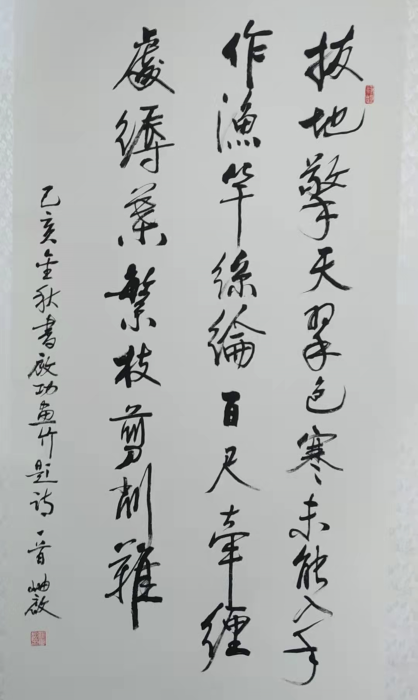 拔地擎天翠色寒未能入手
作漁竿絲綸百尺牽纏
處縟葉繁枝剪削難
己亥金秋書啟功畫竹題詩